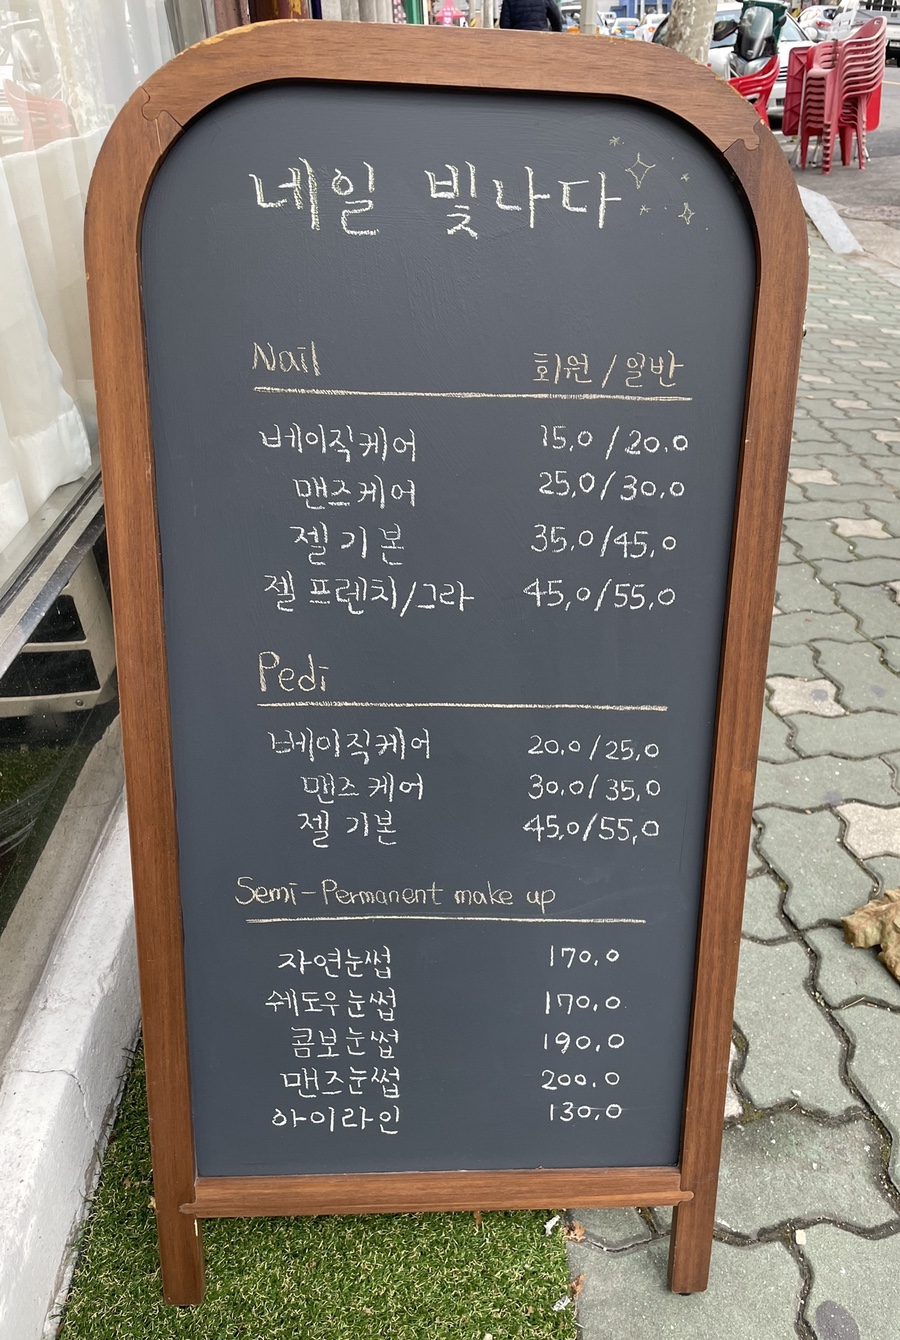 네일 빛나다
Nail 회원 / 일반
베이직케어 15.0 / 20.0
맨즈케어 25.0 / 30.0
젤 기본 35.0 / 45.0
젤 프렌치/그라 45.0 / 55.0
Pedi
베이직케어 20.0 / 25.0
맨즈 케어 30.0 / 35.0
젤 기본 45.0 / 55.0
Semi-Permanent make up
자연눈썹 170.0
쉐도우눈썹 170.0
콤보눈썹 190.0
맨즈눈썹 200.0
아이라인 130.0